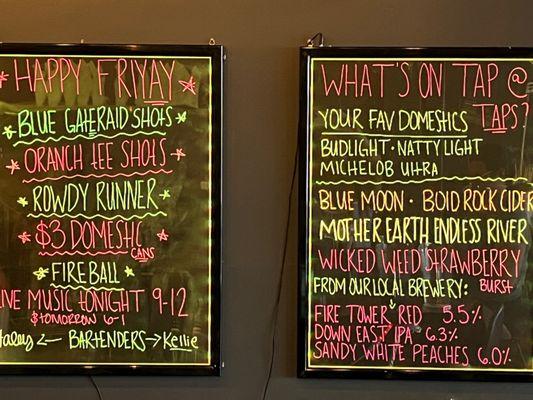 HAPPY FRIYAY
BLUE GATERAID SHOTS
ORANCH TEE SHOTS
ROWDY RUNNER
$3 DOMESTIC
CANS
FIREBALL
MUSIC TONIGHT 9-12
$TOMORROW 6-1
← BARTENDERS → Kellie
WHAT'S ON TAP @
TAPS?
YOUR FAV DOMESTICS
BUDLIGHT · NATTY LIGHT
MICHELOB ULTRA
BLUE MOON · BOLD ROCK CIDER
MOTHER EARTH ENDLESS RIVER
WICKED WEED STRAWBERRY
BURST
FROM OUR LOCAL BREWERY:
FIRE TOWER RED 5.5%
DOWN EAST IPA 6.3%
SANDY WHITE PEACHES 6.0%